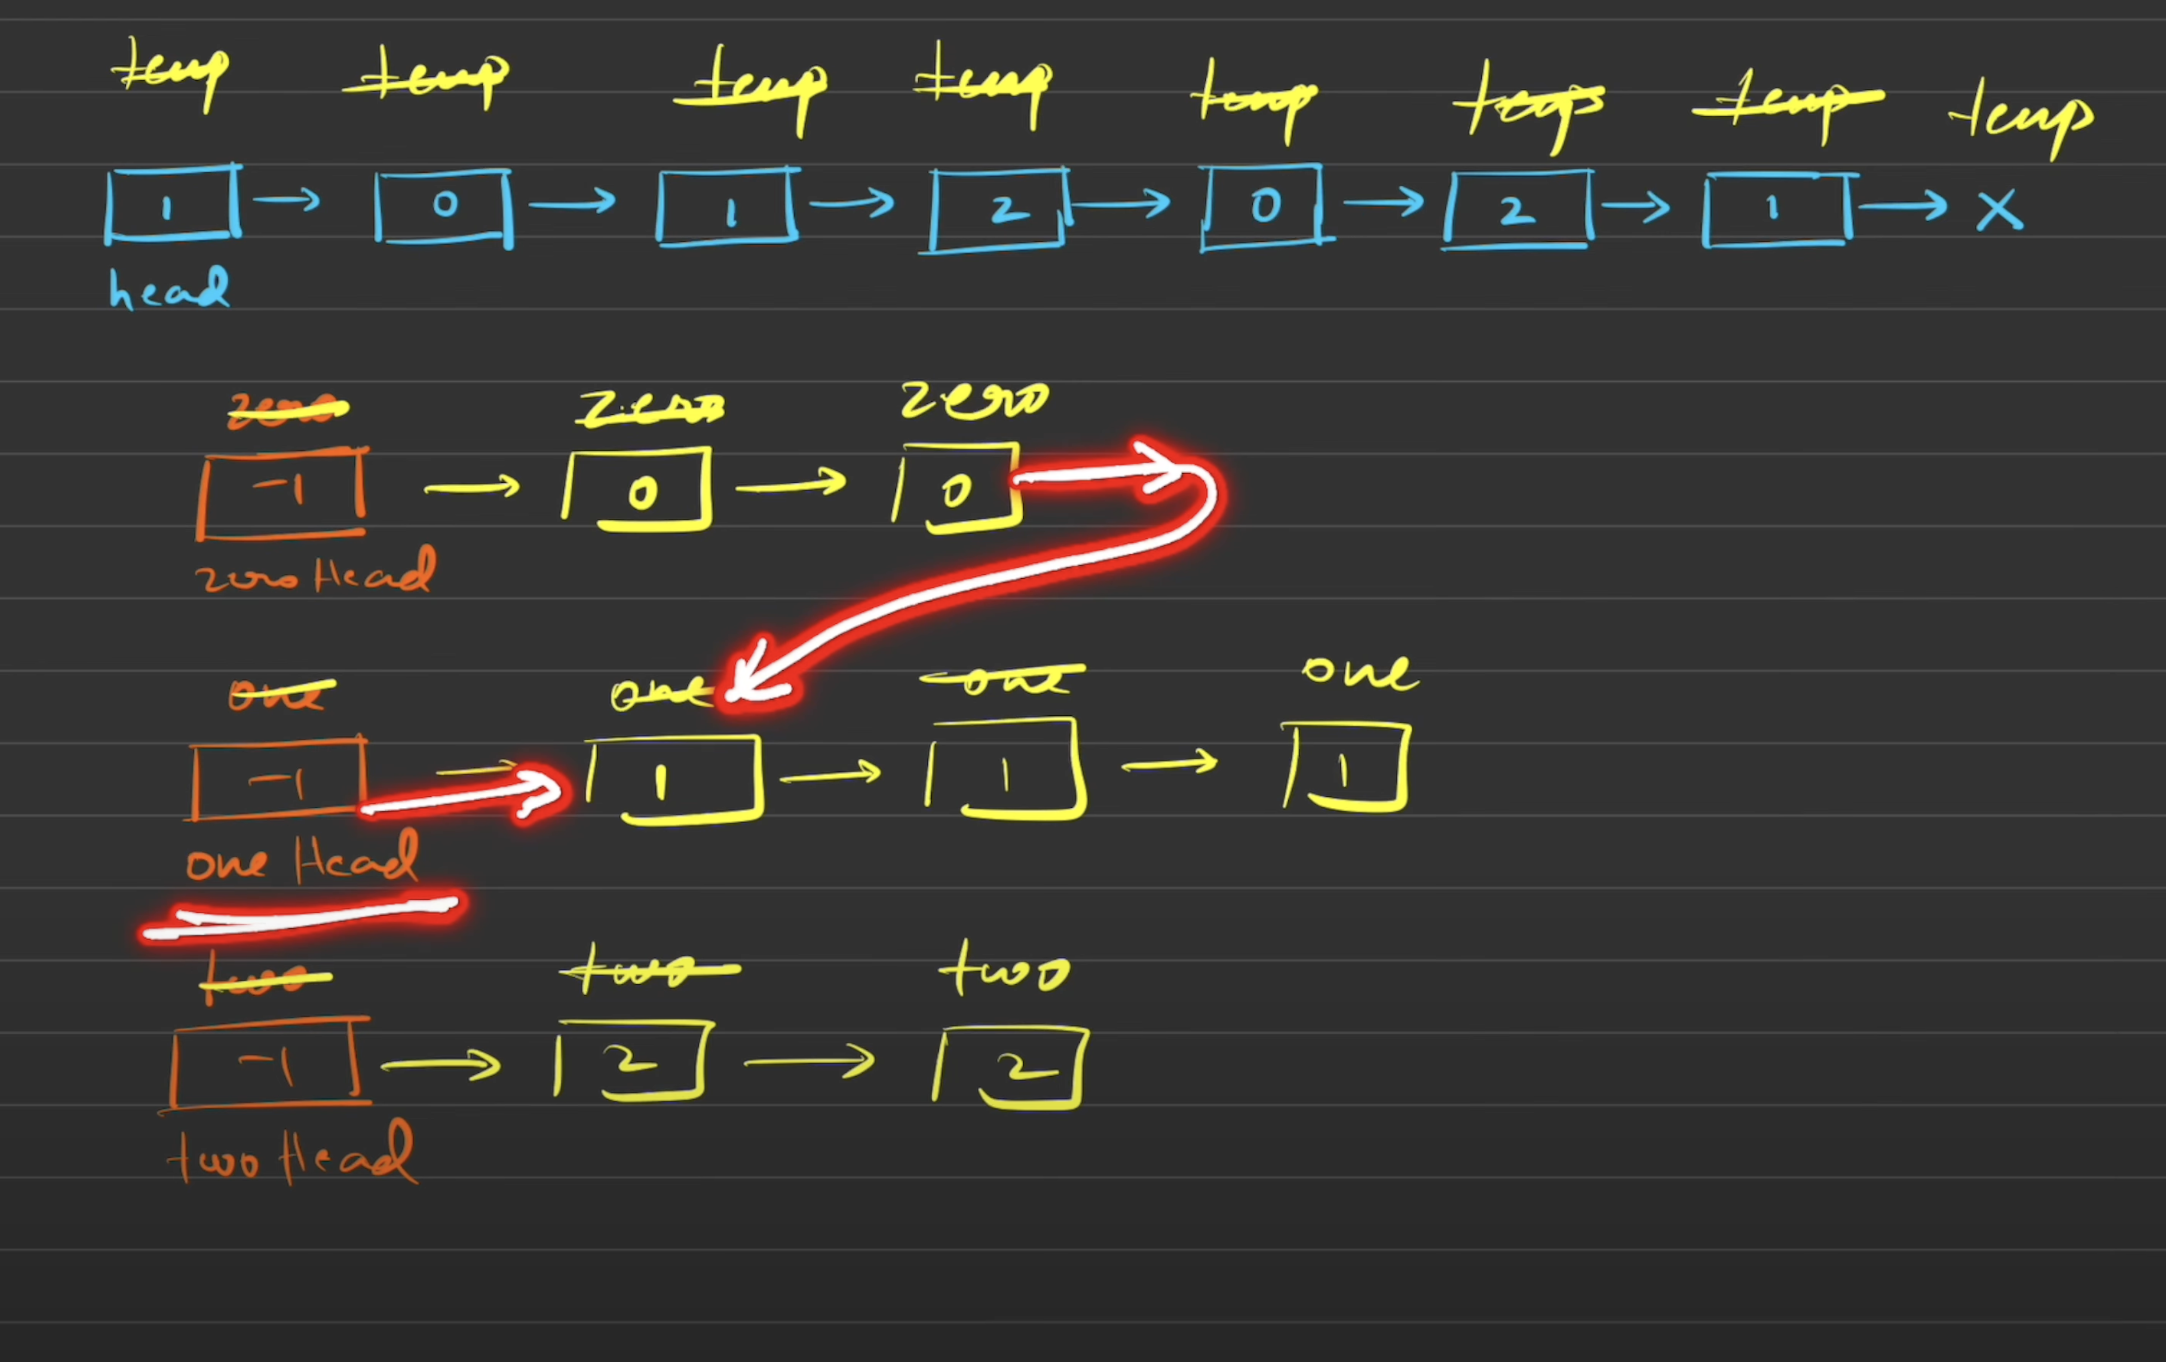 temp temp temp temp temp temp temp temp
1 → 0 → 1 → 2 → 0 → 2 → 1 → X
head
zero zero zero
-1 → 0 → 0 →
zero Head
one one one one
-1 → 1 → 1 → 1
one Head
two two two
-1 → 2 → 2
two Head